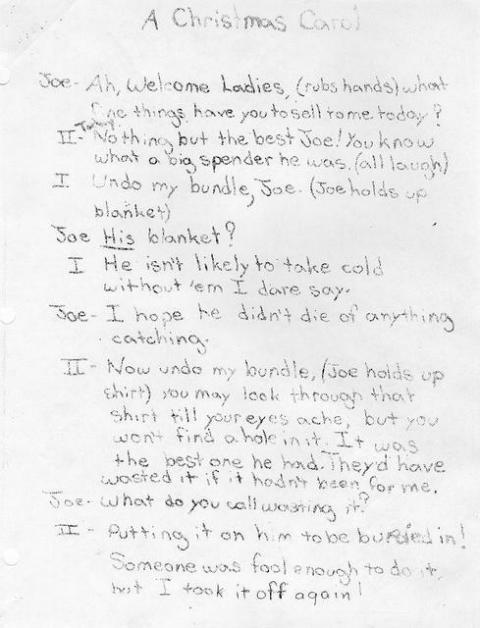 A Christmas Carol
Joe- Ah, Welcome Ladies, (rubs hands) what
fine things have you to sell to me today?
II- Nothing but the best Joe! You know
what a big spender he was. (all laugh)
I Undo my bundle, Joe. (Joe holds up
blanket)
Joe His blanket?
I He isn't likely to take cold
without 'em I dare say.
Joe- I hope he didn't die of anything
catching.
II- Now undo my bundle, (Joe holds up
shirt) you may look through that
shirt till your eyes ache, but you
won't find a hole in it. It was
the best one he had. They'd have
wasted it if it hadn't been for me.
Joe- What do you call wasting it?
II- Putting it on him to be buried in!
Someone was fool enough to do it,
but I took it off again!